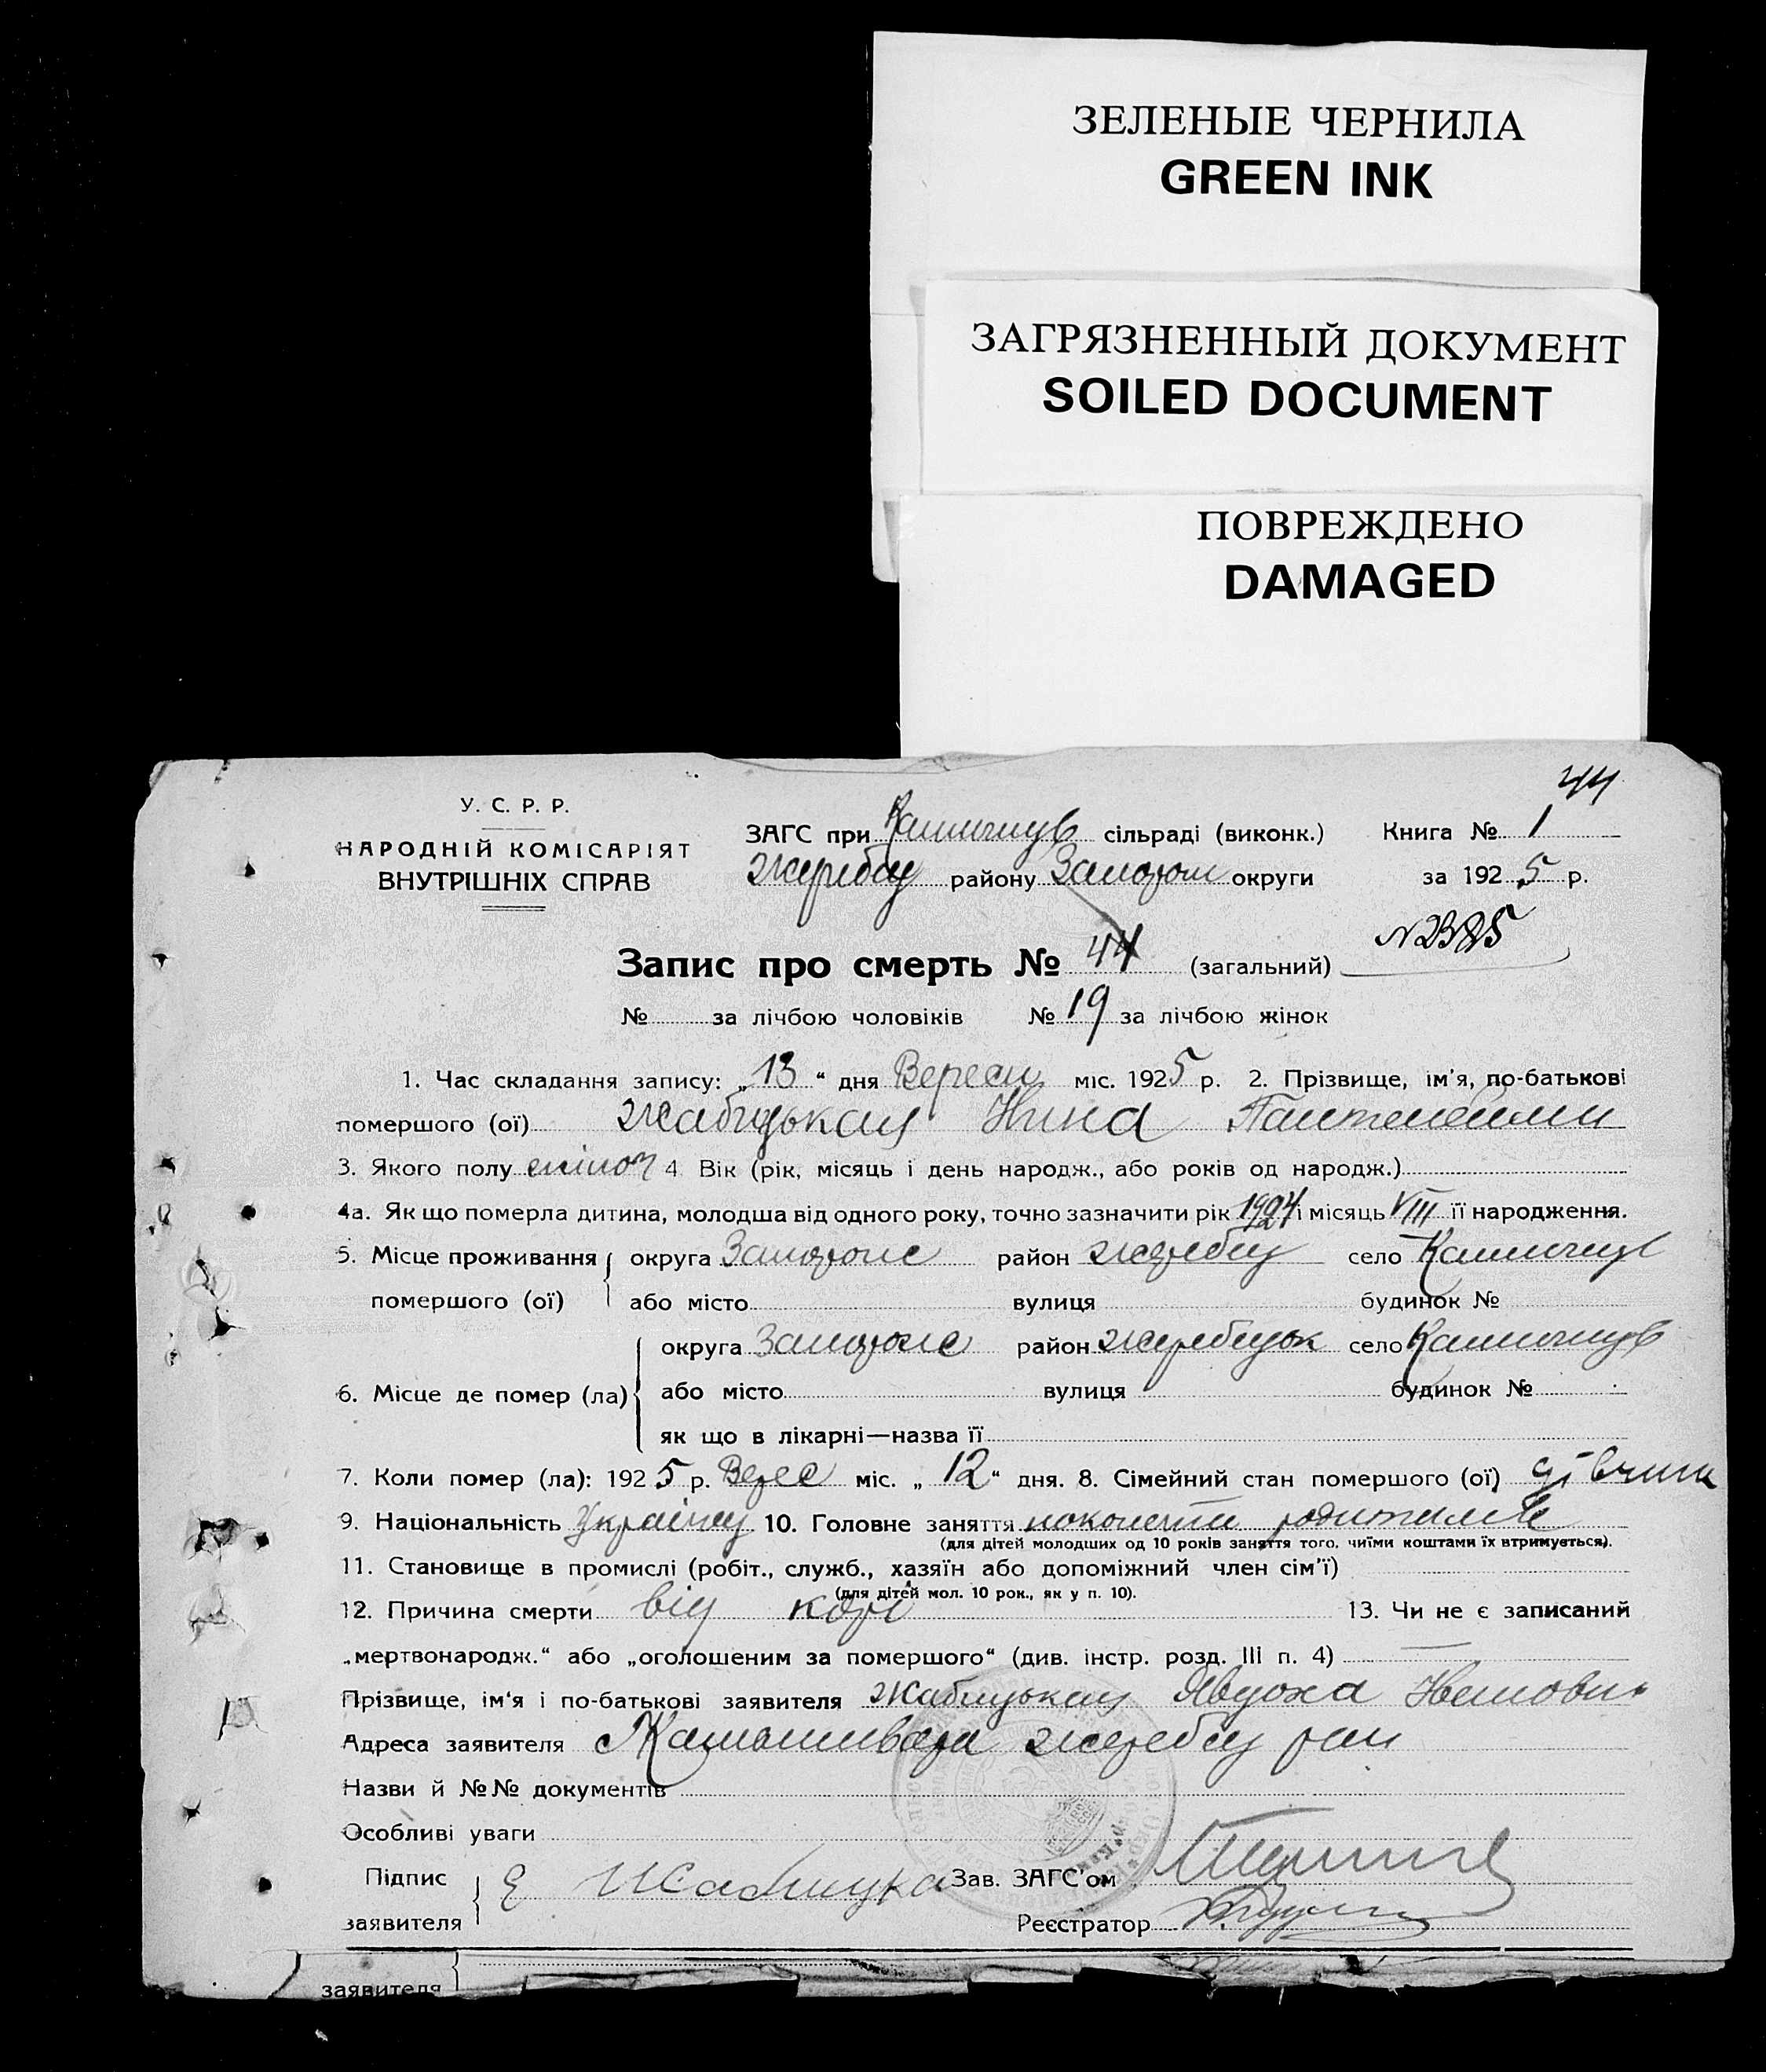 ЗЕЛЕНЫЕ ЧЕРНИЛА
GREEN INK
ЗАГРЯЗНЕННЫЙ ДОКУМЕНТ
SOILED DOCUMENT
ПОВРЕЖДЕНО
DAMAGED
44
У. С. Р. Р.
НАРОДНІЙ КОМІСАРІЯТ
ВНУТРІШНІХ СПРАВ
ЗАГС при сільраді (виконк.) Книга № 1
району округи за 1925 р.
Запис про смерть № 44 (загальний)
№ за лічбою чоловіків № 19 за лічбою жінок
1. Час складання запису: „13“ дня Вересн міс. 1925 р. 2. Прізвище, ім'я, по-батькові
помершого (ої) Жабицькая Нина
3. Якого полу жіноч 4 Вік (рік, місяць і день народж., або років од народж.)
4а. Як що померла дитина, молодша від одного року, точно зазначити рік 1924 і місяць VIII її народження.
5. Місце проживання округа Запорож район жеребец село
помершого (ої) або місто вулиця будинок №
округа Запорож район жеребецьк село
6. Місце де помер (ла) або місто вулиця будинок №
як що в лікарні—назва її
7. Коли помер (ла): 1925 р. Верес міс. „12“ дня. 8. Сімейний стан помершого (ої) дівчина
9. Національність Україн 10. Головне заняття родителів
(для дітей молодших од 10 років заняття того, чиїми коштами їх втримується).
11. Становище в промислі (робіт., служб., хазяїн або допоміжний член сім'ї)
(для дітей мол. 10 рок., як у п. 10).
12. Причина смерти від корі 13. Чи не є записаний
„мертвонародж.“ або „оголошеним за помершого“ (див. інстр. розд. III п. 4) —
Прізвище, ім'я і по-батькові заявителя Жабицькая Явдоха
Адреса заявителя жеребец рай
Назви й №№ документів
Особливі уваги
Підпис Е Жабицка Зав. ЗАГС'ом
заявителя Реєстратор
заявителя